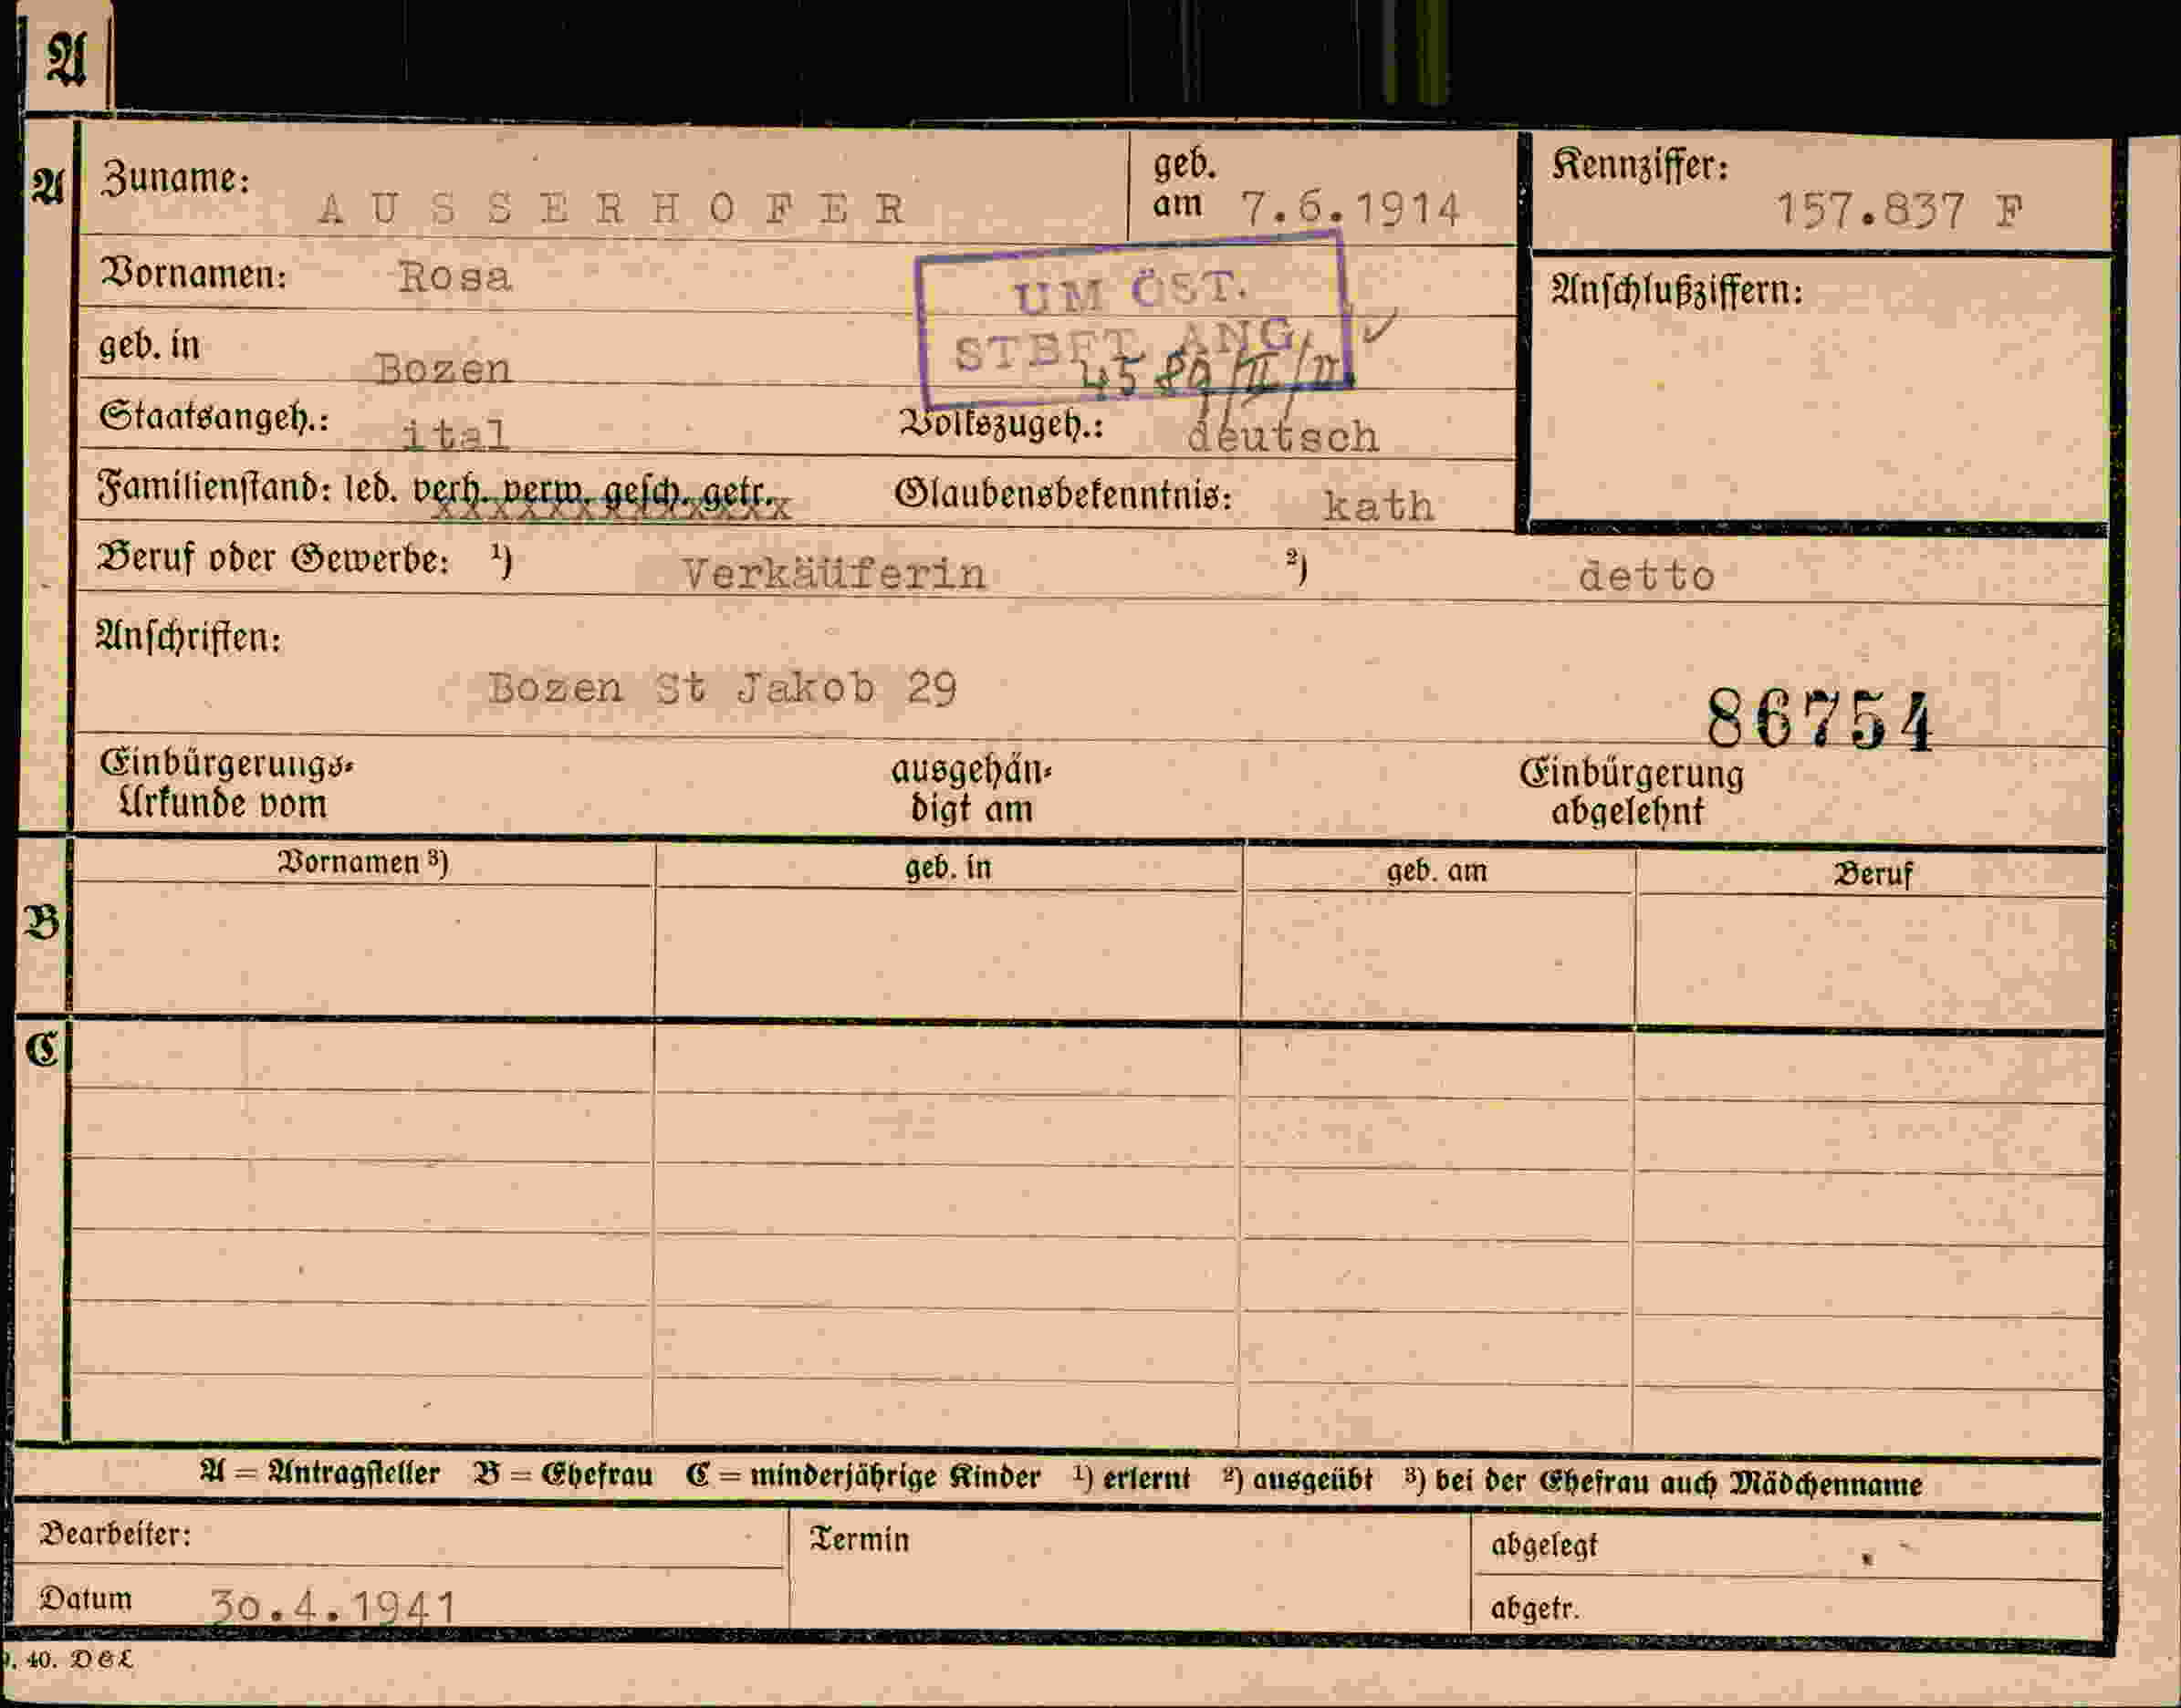 A
A Zuname: AUSSERHOFER geb. am 7.6.1914 Kennziffer: 157.837 F
Vornamen: Rosa
UM ÖST.
STBFT ANG
Anschlußziffern:
geb. in Bozen
Staatsangeh.: ital Volkszugeh.: deutsch
Familienstand: led. verh. verw. gesch. getr. Glaubensbekenntnis: kath
Beruf oder Gewerbe: 1) Verkäuferin 2) detto
Anschriften:
Bozen St Jakob 29
86754
Einbürgerungs-Urkunde vom ausgehän-digt am Einbürgerung abgelehnt
Vornamen 3) geb. in geb. am Beruf
B
C
A = Antragsteller B = Ehefrau C = minderjährige Kinder 1) erlernt 2) ausgeübt 3) bei der Ehefrau auch Mädchenname
Bearbeiter: Termin abgelegt
Datum 30.4.1941 abgetr.
40. D&L